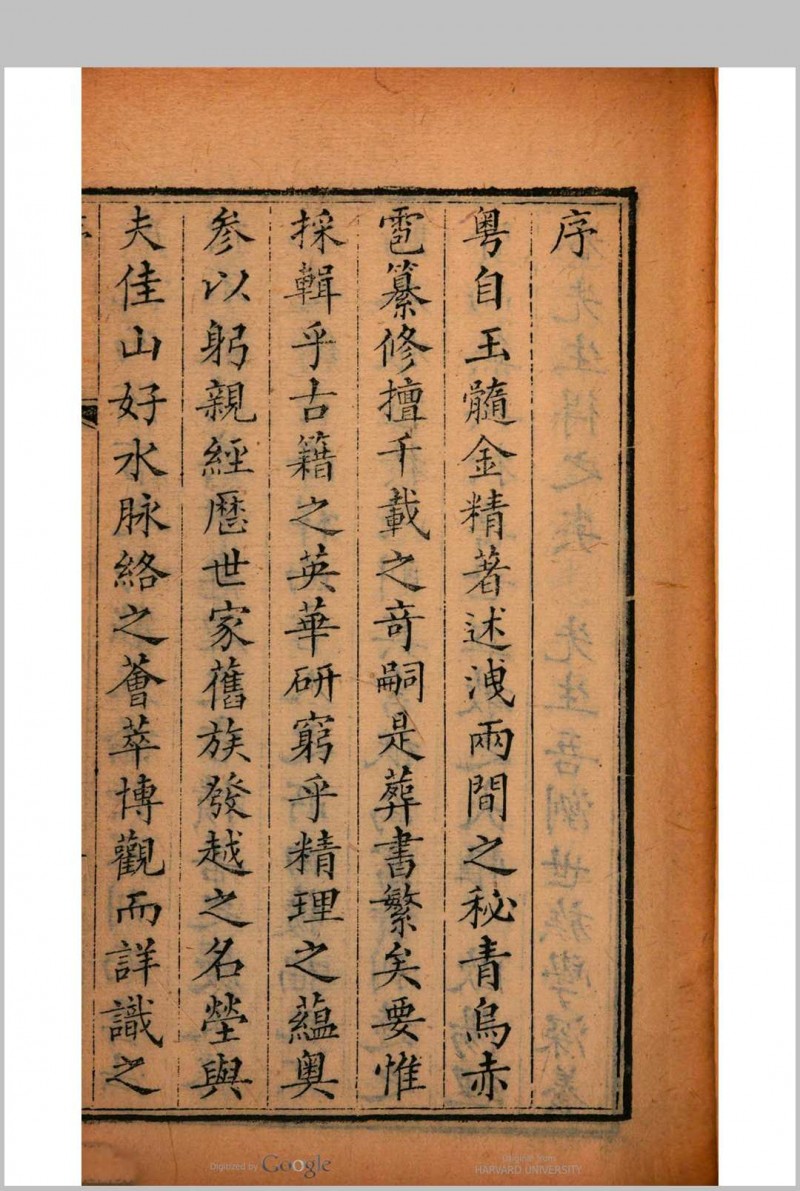 序
粤自玉髓金精著述洩兩間之秘青烏赤
雹纂修擅千載之竒嗣是葬書繁矣要惟
採輯乎古籍之英華研窮乎精理之蘊奥
參以躬親經歷世家舊族發越之名塋與
夫佳山好水脉絡之薈萃博觀而詳識之
Digitized by Google
Original from
HARVARD UNIVERSITY